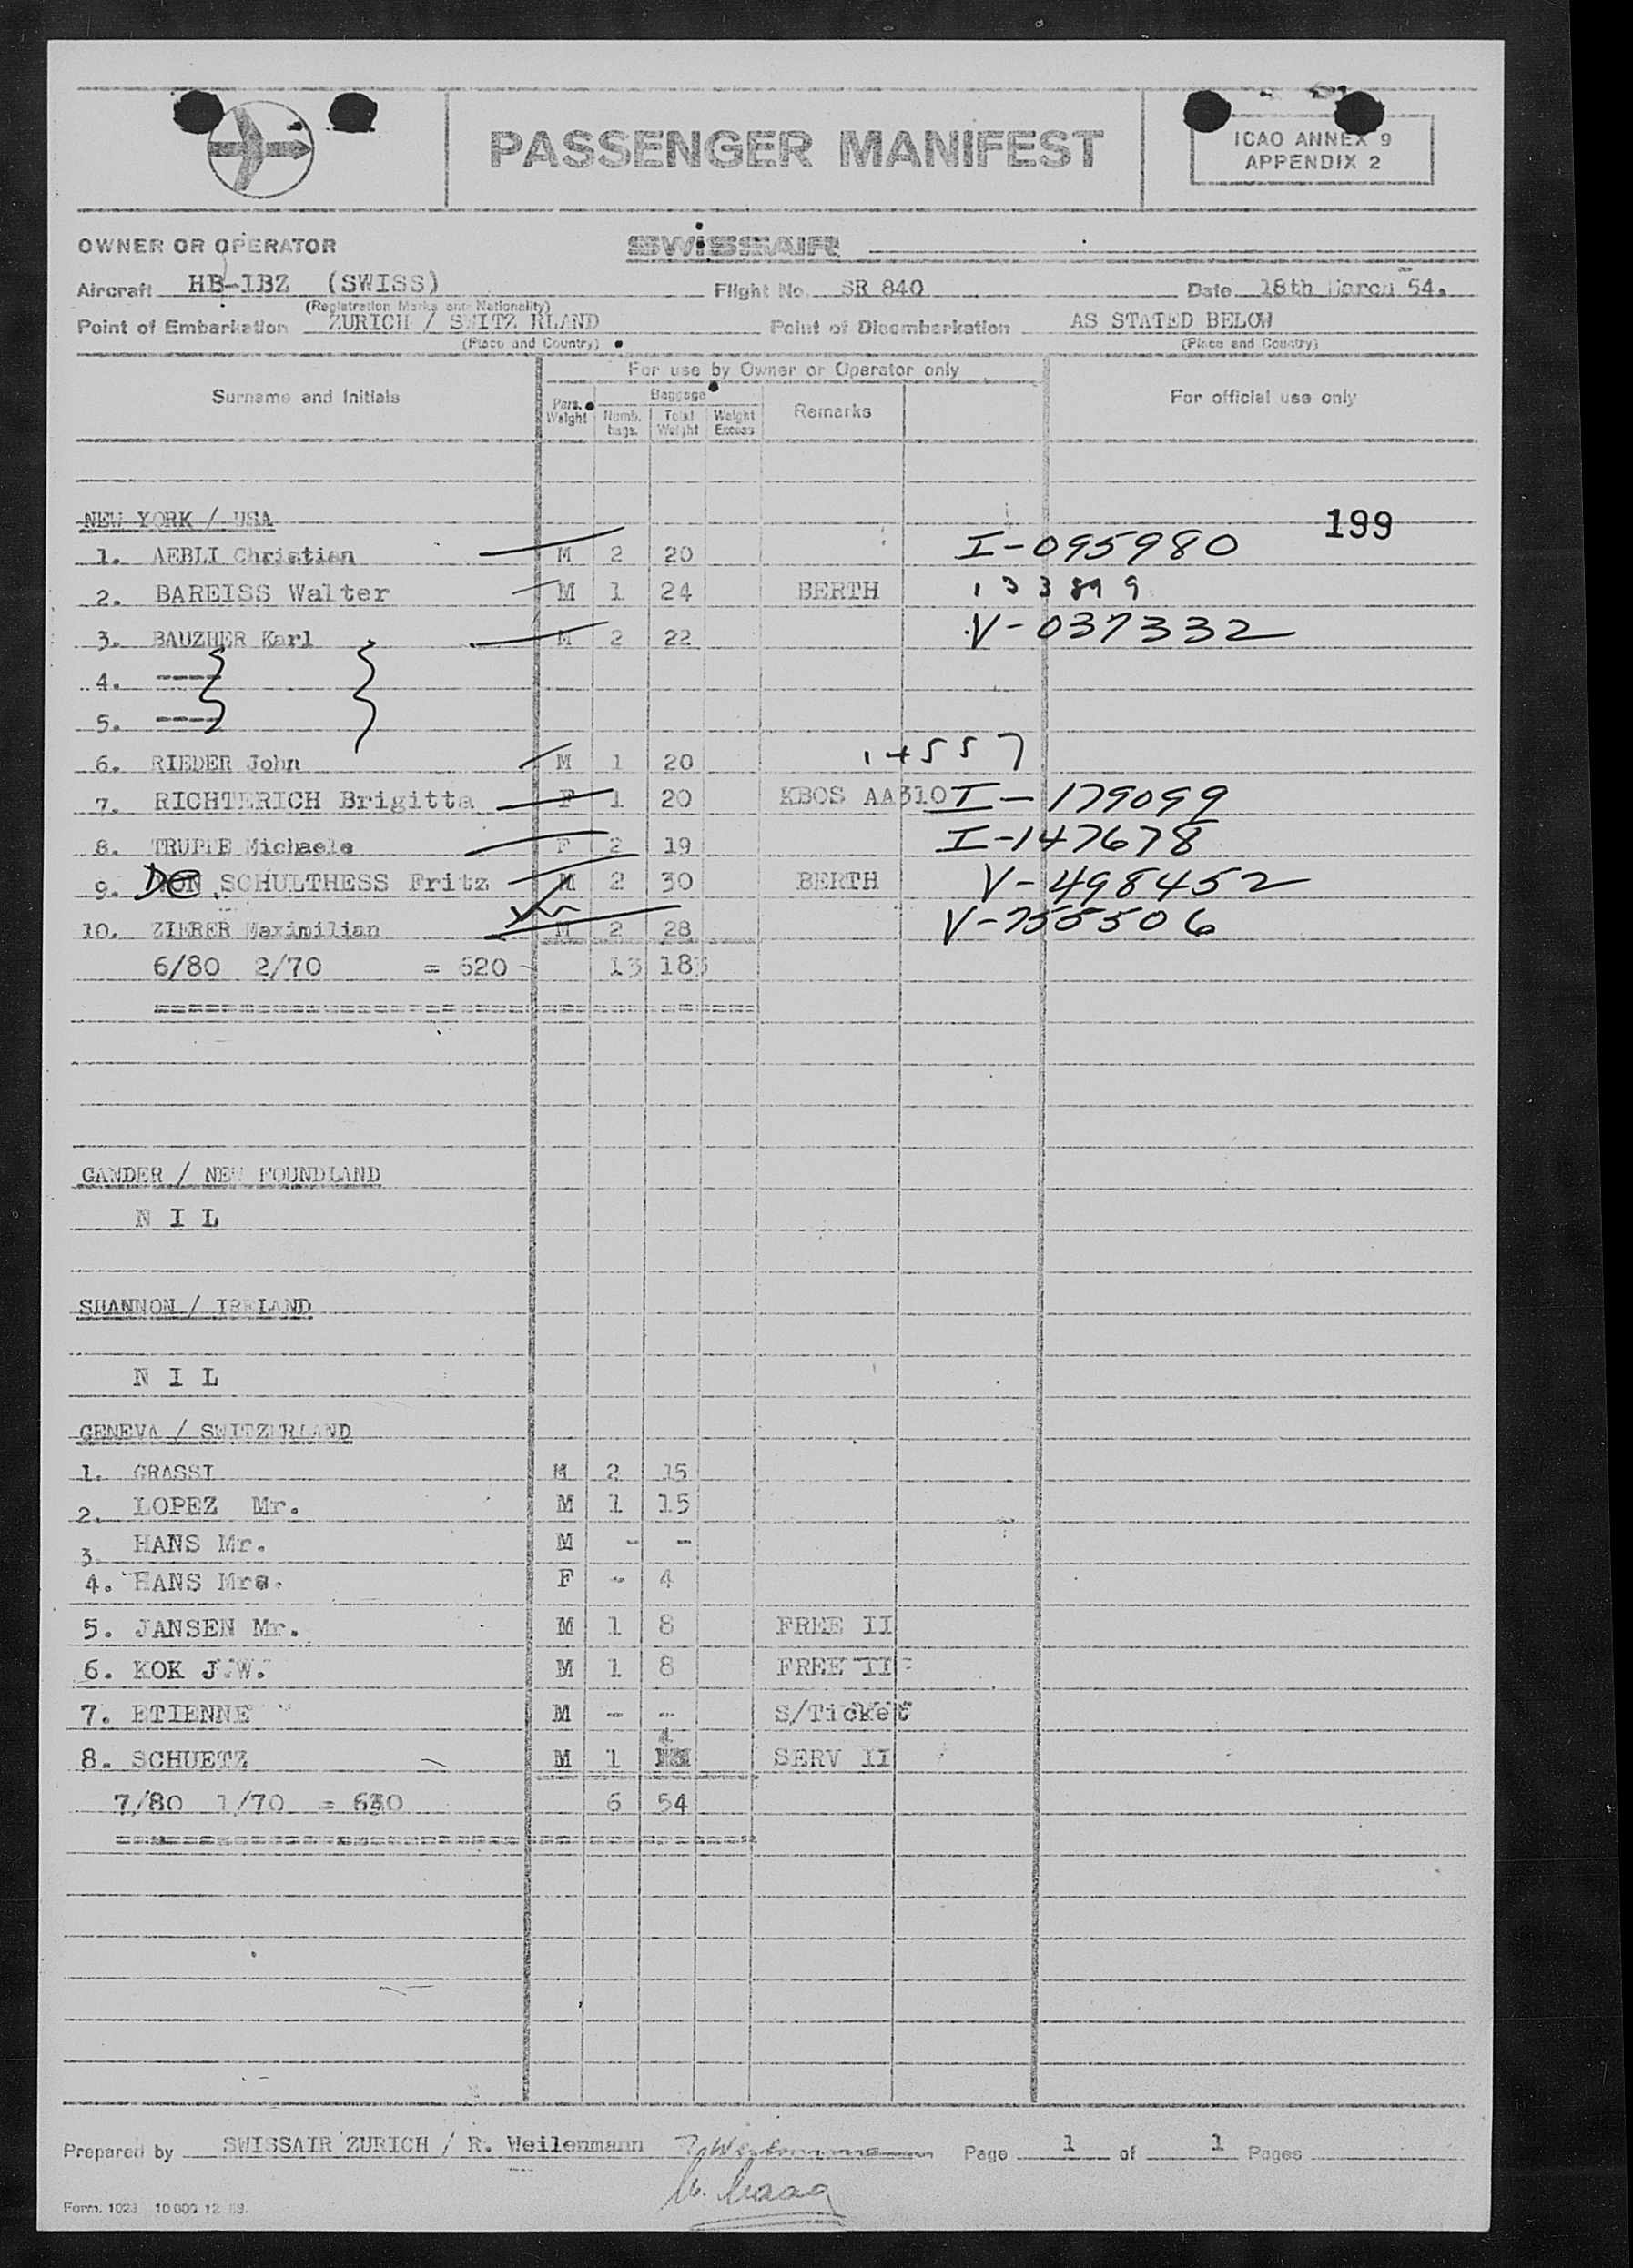 PASSENGER MANIFEST
ICAO ANNEX 9
APPENDIX 2
OWNER OR OPERATOR SWISSAIR
Aircraft HB-IBZ (SWISS) Flight No. SR 840 Date 18th March 54.
(Registration Marks and Nationality)
Point of Embarkation ZURICH / SWITZ RLAND Point of Disembarkation AS STATED BELOW
(Place and Country) (Place and Country)
For use by Owner or Operator only
Surname and Initials Pers. Weight Baggage Numb. bags. Total Weight Weight Excess Remarks For official use only
NEW YORK / USA 199
1. AEBLI Christian M 2 20 I-095980
2. BAREISS Walter M 1 24 BERTH 133899
3. BAUZHER Karl M 2 22 V-037332
4. ----
5. ----
6. RIEDER John M 1 20 14557
7. RICHTERICH Brigitta F 1 20 KBOS AA310 I-179099
8. Michaele F 2 19 I-147678
9. SCHULTHESS Fritz M 2 30 BERTH V-498452
10. ZIERER Maximilian M 2 28 V-755506
6/80 2/70 = 620 13 183
GANDER / NEW FOUNDLAND
N I L
SHANNON / IRELAND
N I L
GENEVA / SWITZERLAND
1. GRASSI M 2 15
2. LOPEZ Mr. M 1 15
3. HANS Mr. M - -
4. HANS Mrs. F - 4
5. JANSEN Mr. M 1 8 FREE II
6. KOK J.W. M 1 8 FREE II
7. ETIENNE M - - S/Ticket
8. SCHUETZ M 1 4 SERV II
7/80 1/70 = 630 6 54
Prepared by SWISSAIR ZURICH / R. Weilenmann Page 1 of 1 Pages
Form. 1023 10000 12